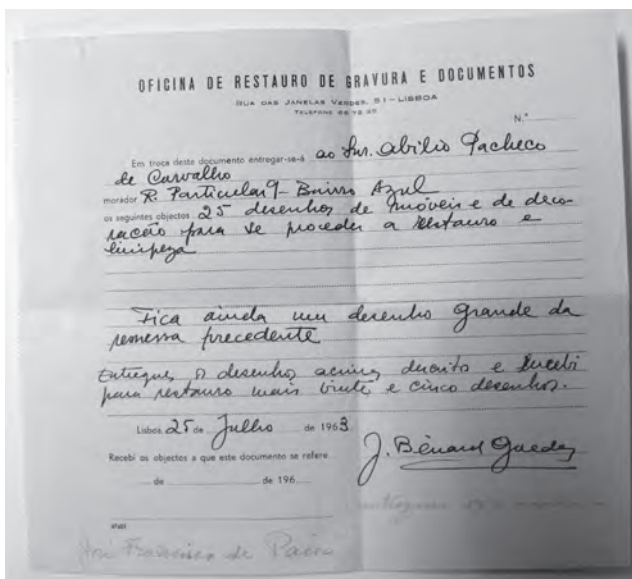 OFICINA DE RESTAURO DE GRAVURA E DOCUMENTOS
RUA DAS JANELAS VERDES, 51 – LISBOA
TELEFONE 66
N.º
Em troca deste documento entregar-se-á ao Snr. Abilio Pacheco
de Carvalho
morador R. Particular 9 – Bairro Azul
os seguintes objectos 25 desenhos de móveis e de deco-
ração para se proceder a restauro e
limpeza
Fica ainda um desenho grande da
remessa precedente
Entreguei o desenho acima descrito e recebi
para restauro mais vinte e cinco desenhos.
Lisboa 25 de Julho de 1963
Recebi os objectos a que este documento se refere
J. Bénard Guedes
de de 196
José Francisco de Paiva